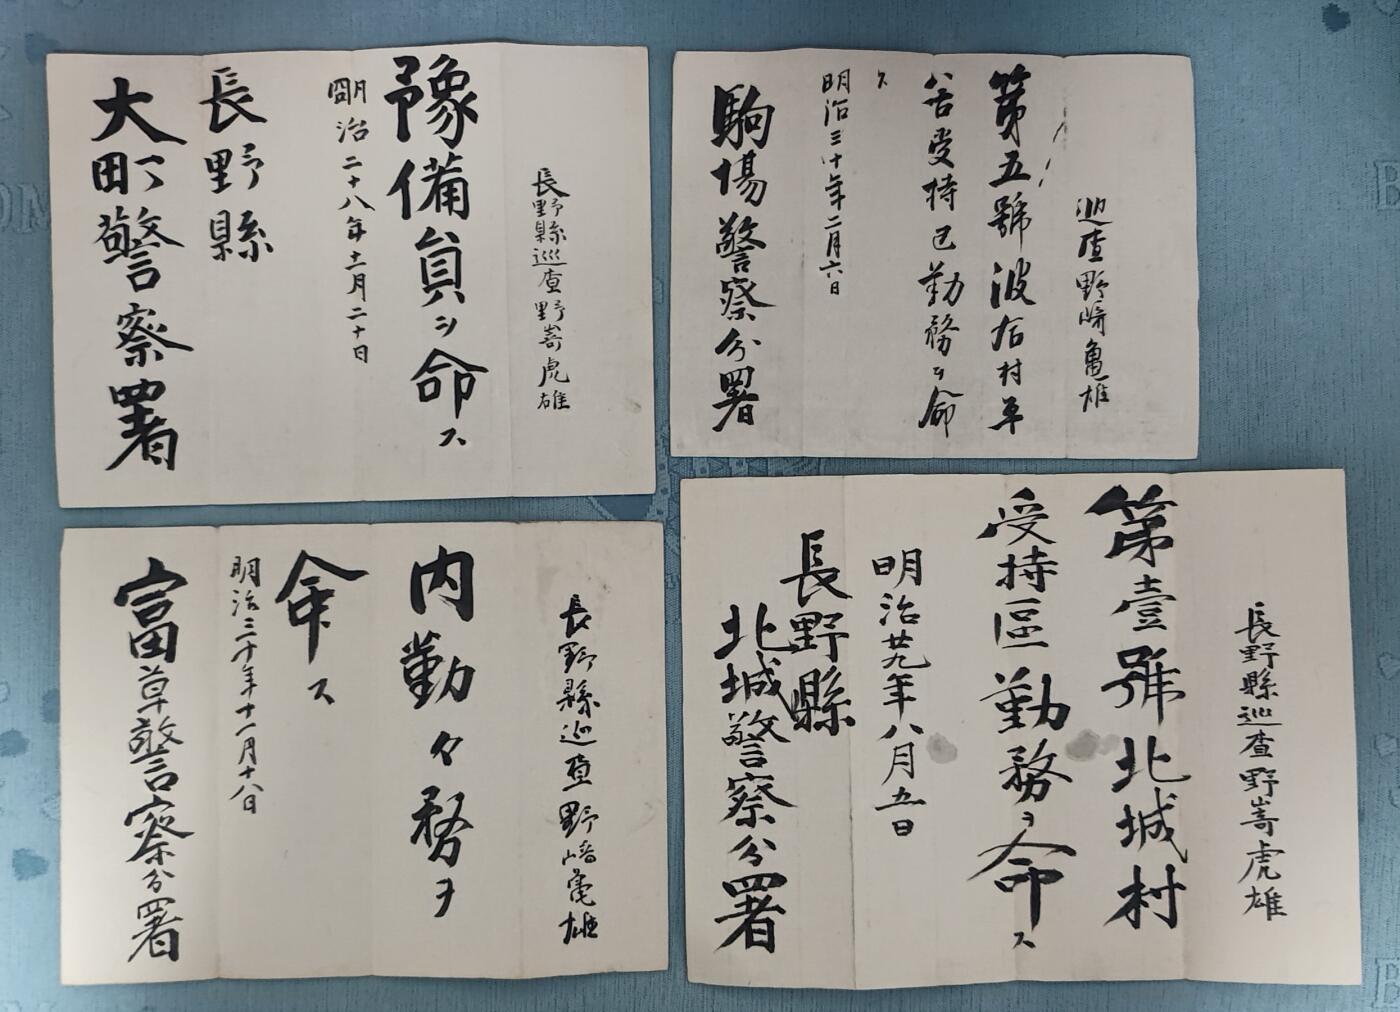 長野縣巡査野嵜虎雄
豫備員ヲ命ス
明治二十八年十二月二十日
長野縣
大町警察署
巡査野﨑亀雄
第五號波合村平
谷受持区勤務ヲ命
ス
明治三十年二月六日
駒場警察分署
長野縣巡査野﨑亀雄
内勤々務ヲ
命ス
明治三十年十一月十八日
富草警察分署
長野縣巡査野嵜虎雄
第壹號北城村
受持區勤務ヲ命ス
明治廿九年八月五日
長野縣
北城警察分署